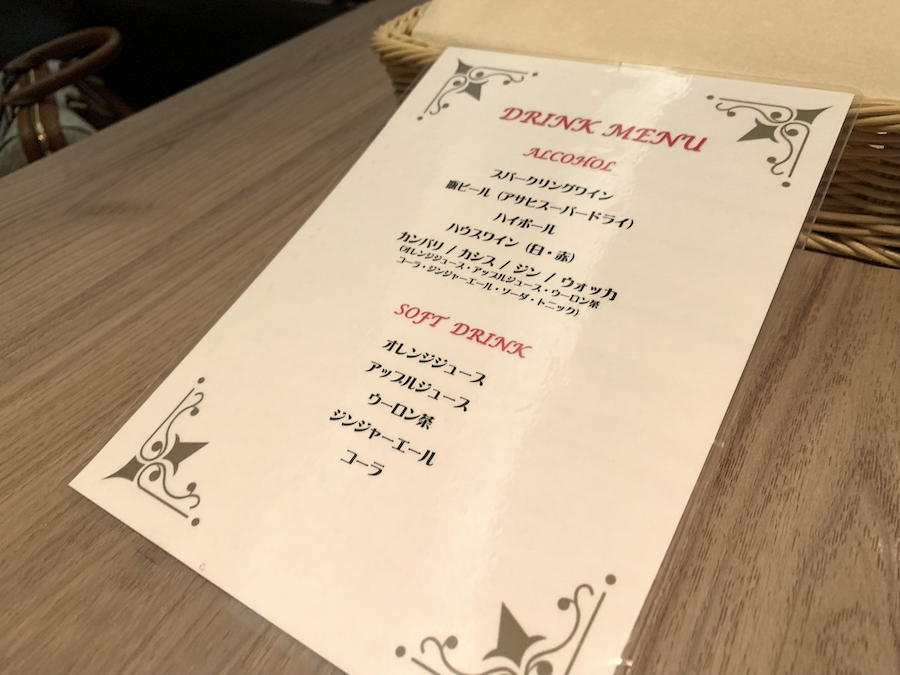 DRINK MENU
ALCOHOL
スパークリングワイン
瓶ビール（アサヒスーパードライ）
ハイボール
ハウスワイン（白・赤）
カンパリ / カシス / ジン / ウォッカ
（オレンジジュース・アップルジュース・ウーロン茶
コーラ・ジンジャーエール・ソーダ・トニック）
SOFT DRINK
オレンジジュース
アップルジュース
ウーロン茶
ジンジャーエール
コーラ